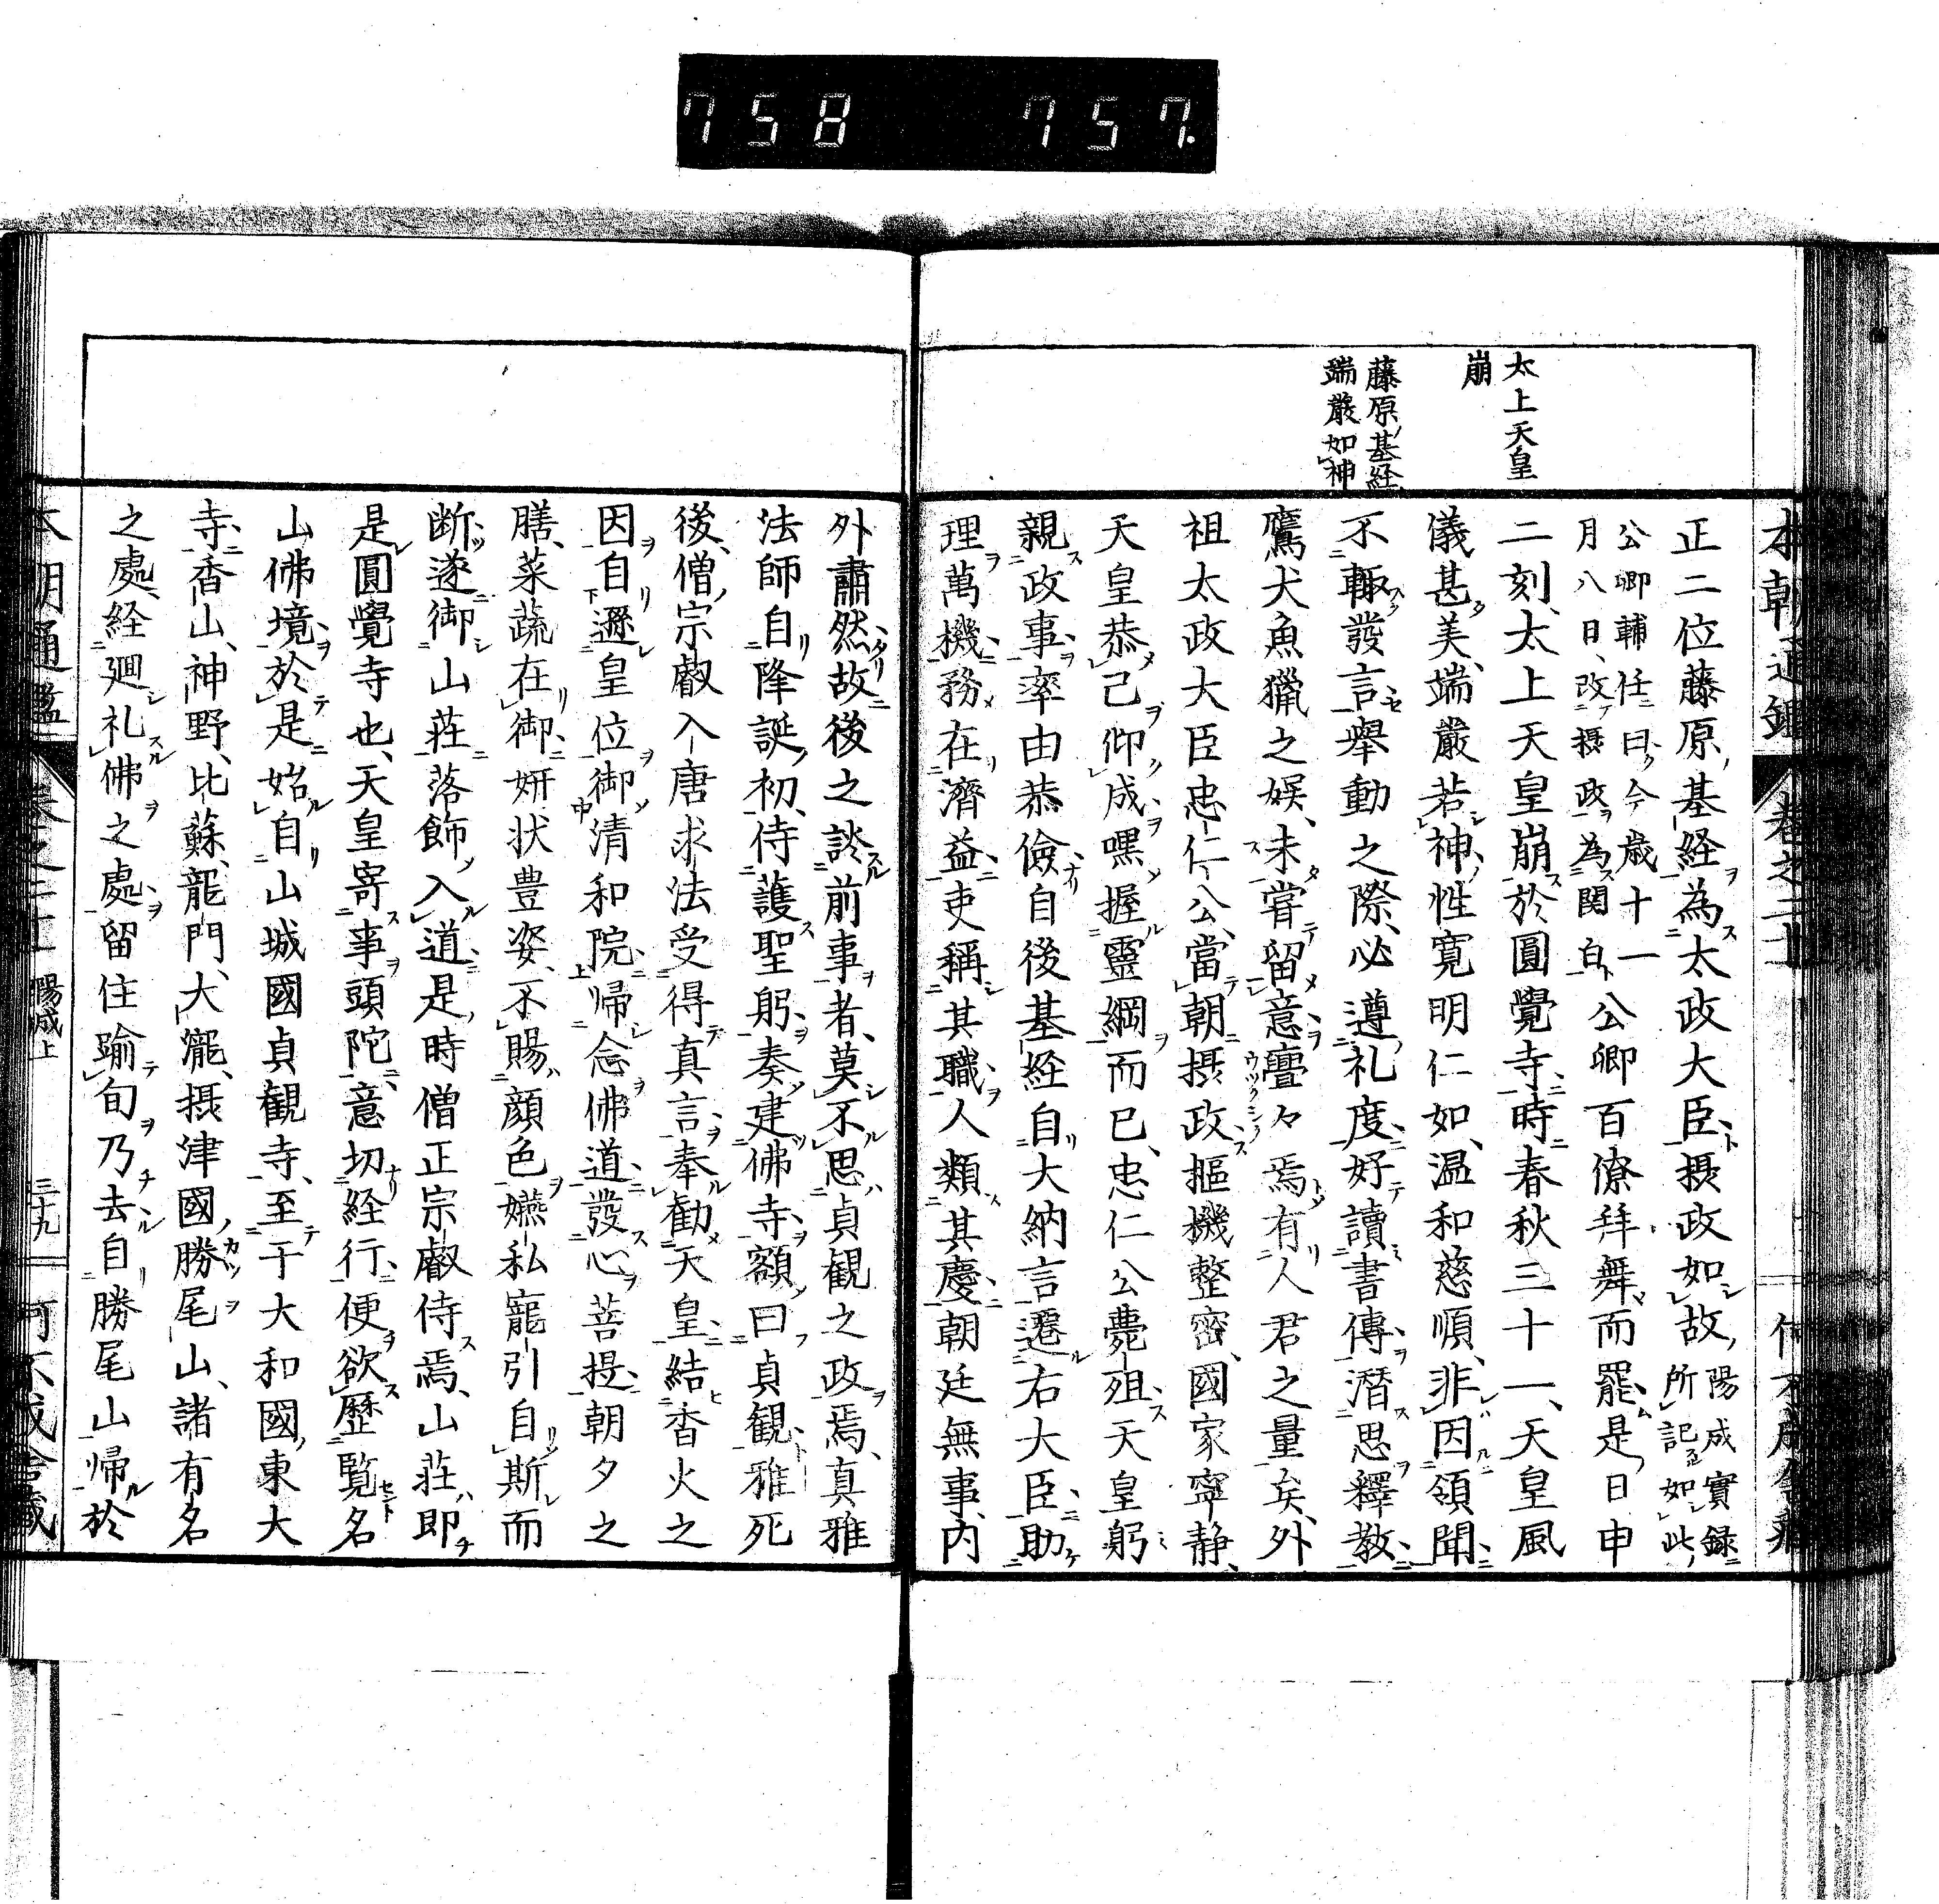 758 757.
太上天皇
崩
藤原基経
端嚴如神
正二位藤原基経為太政大臣摂政如故陽成實録
所記如此
公卿輔任曰今歳十一
月八日改摂政為関白公卿百僚拜舞而罷是日申
二刻太上天皇崩於圓覺寺時春秋三十一天皇風
儀甚美端嚴若神性寛明仁如温和慈順非因領聞
不輙發言舉動之際必遵礼度好讀書傳潛思釋教
鷹犬魚獵之娯未甞留意亹々焉有人君之量矣外
祖太政大臣忠仁公當朝摂政樞機整密國家寧静
天皇恭己仰成嘿握靈綱而已忠仁公薨殂天皇躬
親政事率由恭儉自後基経自大納言遷右大臣助
理萬機務在濟益吏稱其職人類其慶朝廷無事内
外肅然故後之談前事者莫不思貞観之政焉真雅
法師自降誕初侍護聖躬奏建佛寺額曰貞観雅死
後僧宗叡入唐求法受得真言奉勸天皇結香火之
因自遜皇位御清和院帰念佛道發心菩提朝夕之
膳菜蔬在御妍状豊姿不賜顔色嬿私寵引自斯而
断遂御山莊落飾入道是時僧正宗叡侍焉山莊即
是圓覺寺也天皇寄事頭陀意切経行便欲歴覧名
山佛境於是始自山城國貞観寺至于大和國東大
寺香山神野比蘇龍門大瀧摂津國勝尾山諸有名
之處経廻礼佛之處留住踰旬乃去自勝尾山帰於
陽成上
三十九